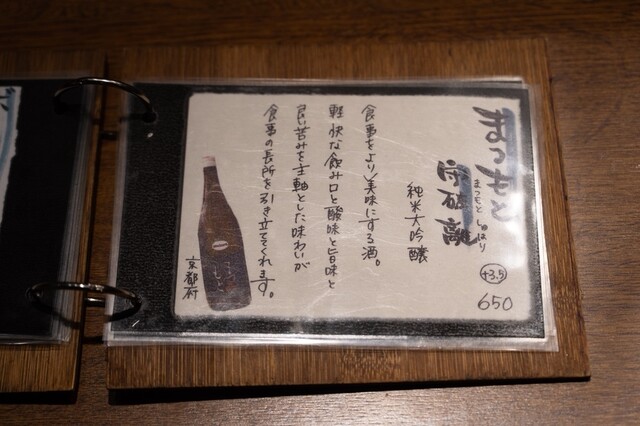 まつもと
守破離
まつもと しゅはり
純米大吟醸
+3.5
650
食事をより美味にする酒。
軽快な飲み口と酸味と旨味と
良い苦みを主軸とした味わいが
食事の長所を引き立ててくれます。
京都府